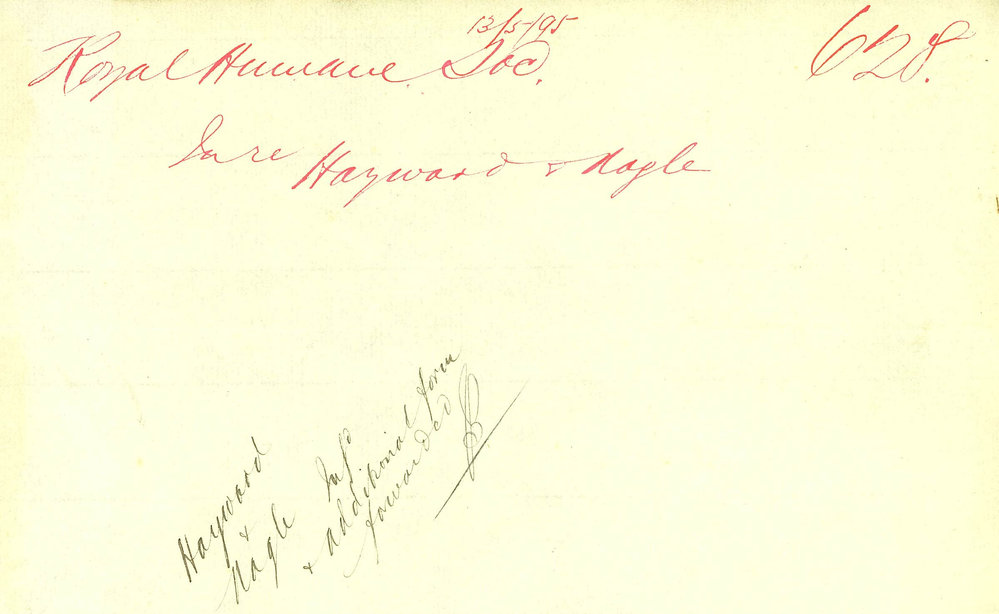 13/5/95
Royal Humane Soc. 628.
In re
Hayward & Nagle
Hayward
&
Nagle Inf
& additional form
forwarded